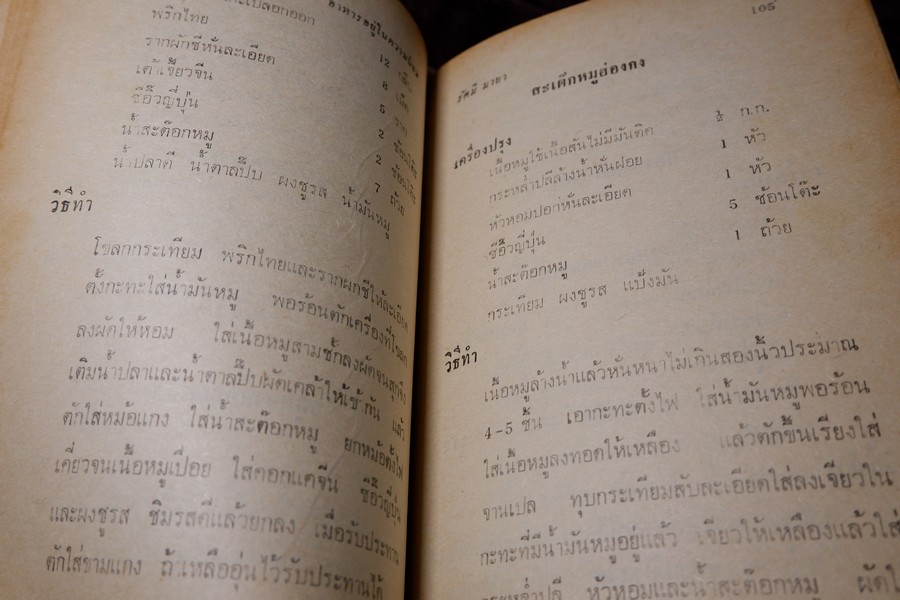 อาหารอยู่ใน
พริกไทย 12
รากผักชีหั่นละเอียด 8
เต้าเจี้ยวจีน 5
ซีอิ๊วญี่ปุ่น 2 ช้อนโต๊ะ
น้ำสะต๊อกหมู 2 ช้อนโต๊ะ
น้ำปลาดี น้ำตาลปึบ ผงชูรส น้ำมันหมู 7 ถ้วย
วิธีทำ
โขลกกระเทียม พริกไทยและรากผักชีให้ละเอียด
ตั้งกะทะใส่น้ำมันหมู พอร้อนตักเครื่องที่โขลก
ลงผัดให้หอม ใส่เนื้อหมูสามชั้นลงผัดจนสุกจึง
เติมน้ำปลาและน้ำตาลปึบผัดเคล้าให้เข้ากัน แล้ว
ตักใส่หม้อแกง ใส่น้ำสะต๊อกหมู ยกหม้อตั้งไฟ
เคี่ยวจนเนื้อหมูเปื่อย ใส่ดอกแคจีน ซีอิ๊วญี่ปุ่น
และผงชูรส ชิมรสดีแล้วยกลง เมื่อรับประทาน
ตักใส่ชามแกง ถ้าเหลืออุ่นไว้รับประทานได้
105
รัศมี มายา
สะเต๊กหมูฮ่องกง
เครื่องปรุง
เนื้อหมูใช้เนื้อสันไม่มีมันติด ก.ก.
กระหล่ำปลีล้างน้ำหั่นฝอย 1 หัว
หัวหอมปอกหั่นละเอียด 1 หัว
ซีอิ๊วญี่ปุ่น 5 ช้อนโต๊ะ
น้ำสะต๊อกหมู 1 ถ้วย
กระเทียม ผงชูรส แป้งมัน
วิธีทำ
เนื้อหมูล้างน้ำแล้วหั่นหนาไม่เกินสองนิ้วประมาณ
4-5 ชิ้น เอากะทะตั้งไฟ ใส่น้ำมันหมูพอร้อน
ใส่เนื้อหมูลงทอดให้เหลือง แล้วตักขึ้นเรียงใส่
จานเปล ทุบกระเทียมสับละเอียดใส่ลงเจียวใน
กะทะที่มีน้ำมันหมูอยู่แล้ว เจียวให้เหลืองแล้วใส่
กระหล่ำปลี หัวหอมและน้ำสะต๊อกหมู ผัดให้